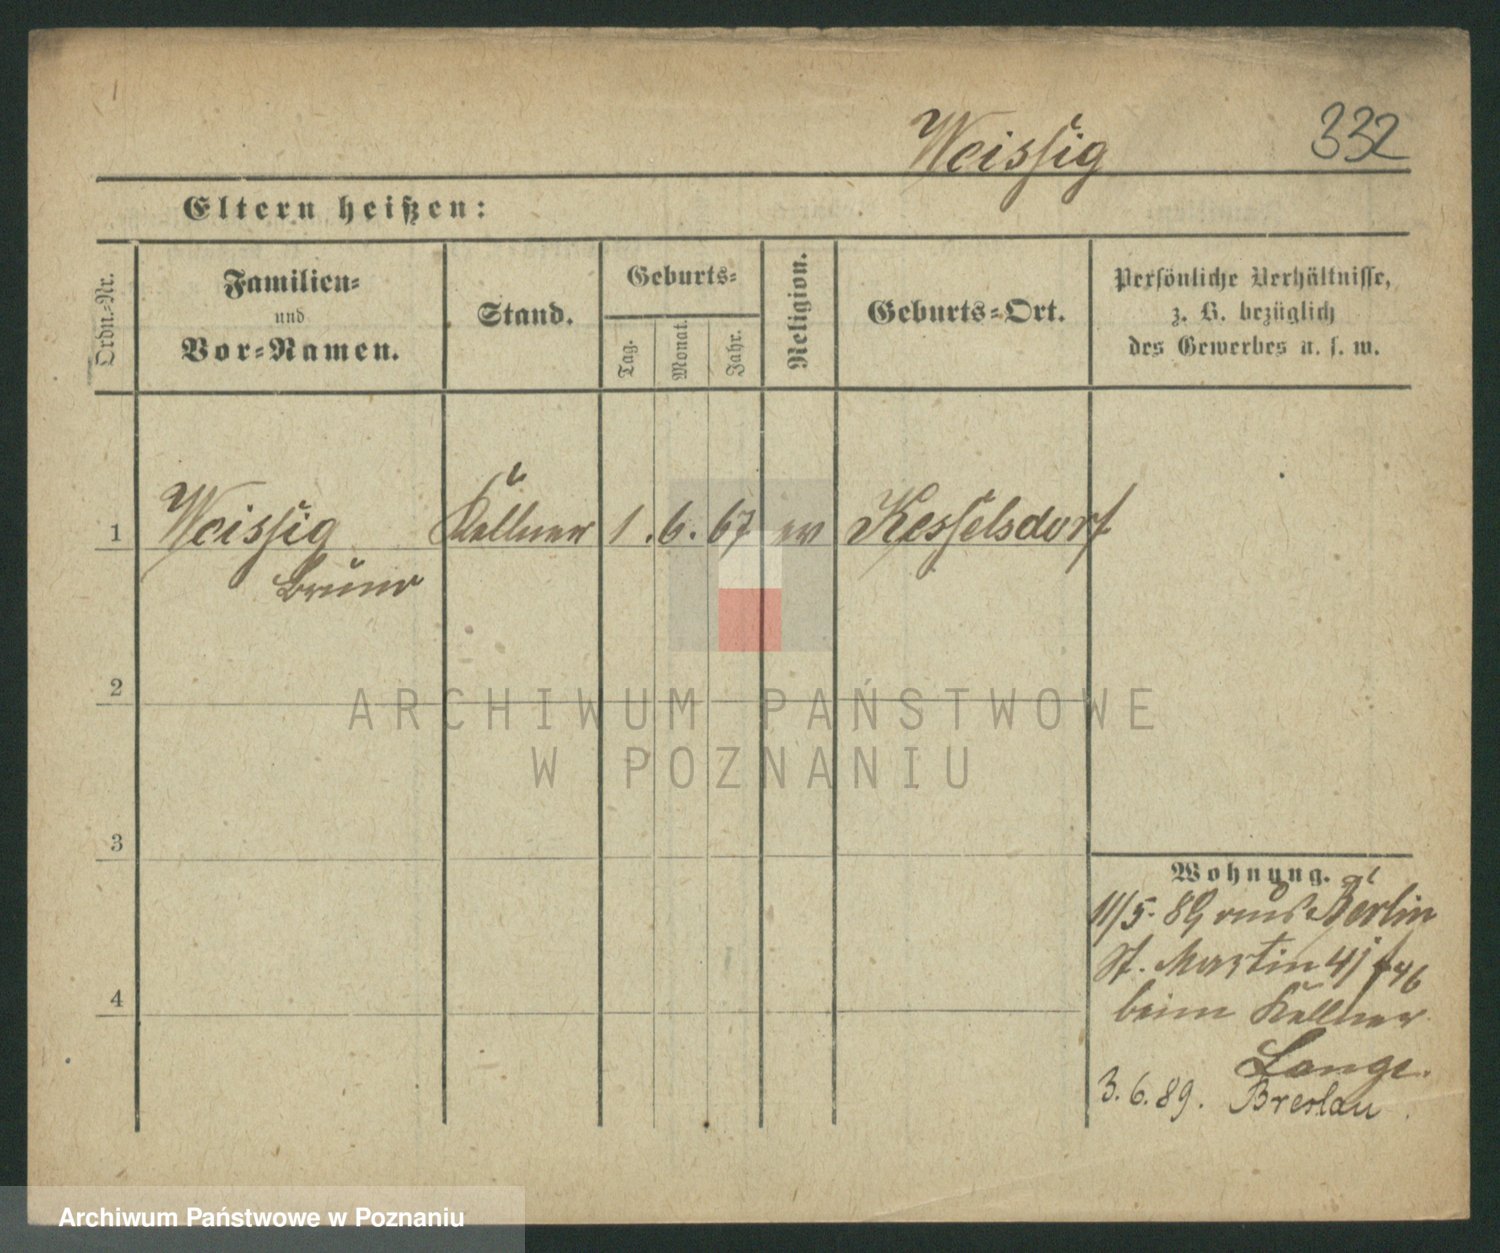 Weissig 332
Eltern heißen:
Ordn.-Nr.
Familien-
und
Vor-Namen.
Stand.
Geburts-
Tag.
Monat.
Jahr.
Religion.
Geburts-Ort.
Persönliche Verhältnisse,
z. B. bezüglich
des Gewerbes u. s. w.
1 Weissig Kellner 1. 6. 67 ev Kesselsdorf
Bruno
2
ARCHIWUM PAŃSTWOWE
W POZNANIU
3
Wohnung.
11/5. 89 aus Berlin
St. Martin 41
beim Kellner
Lange.
4
3. 6. 89. Breslau.
Archiwum Państwowe w Poznaniu